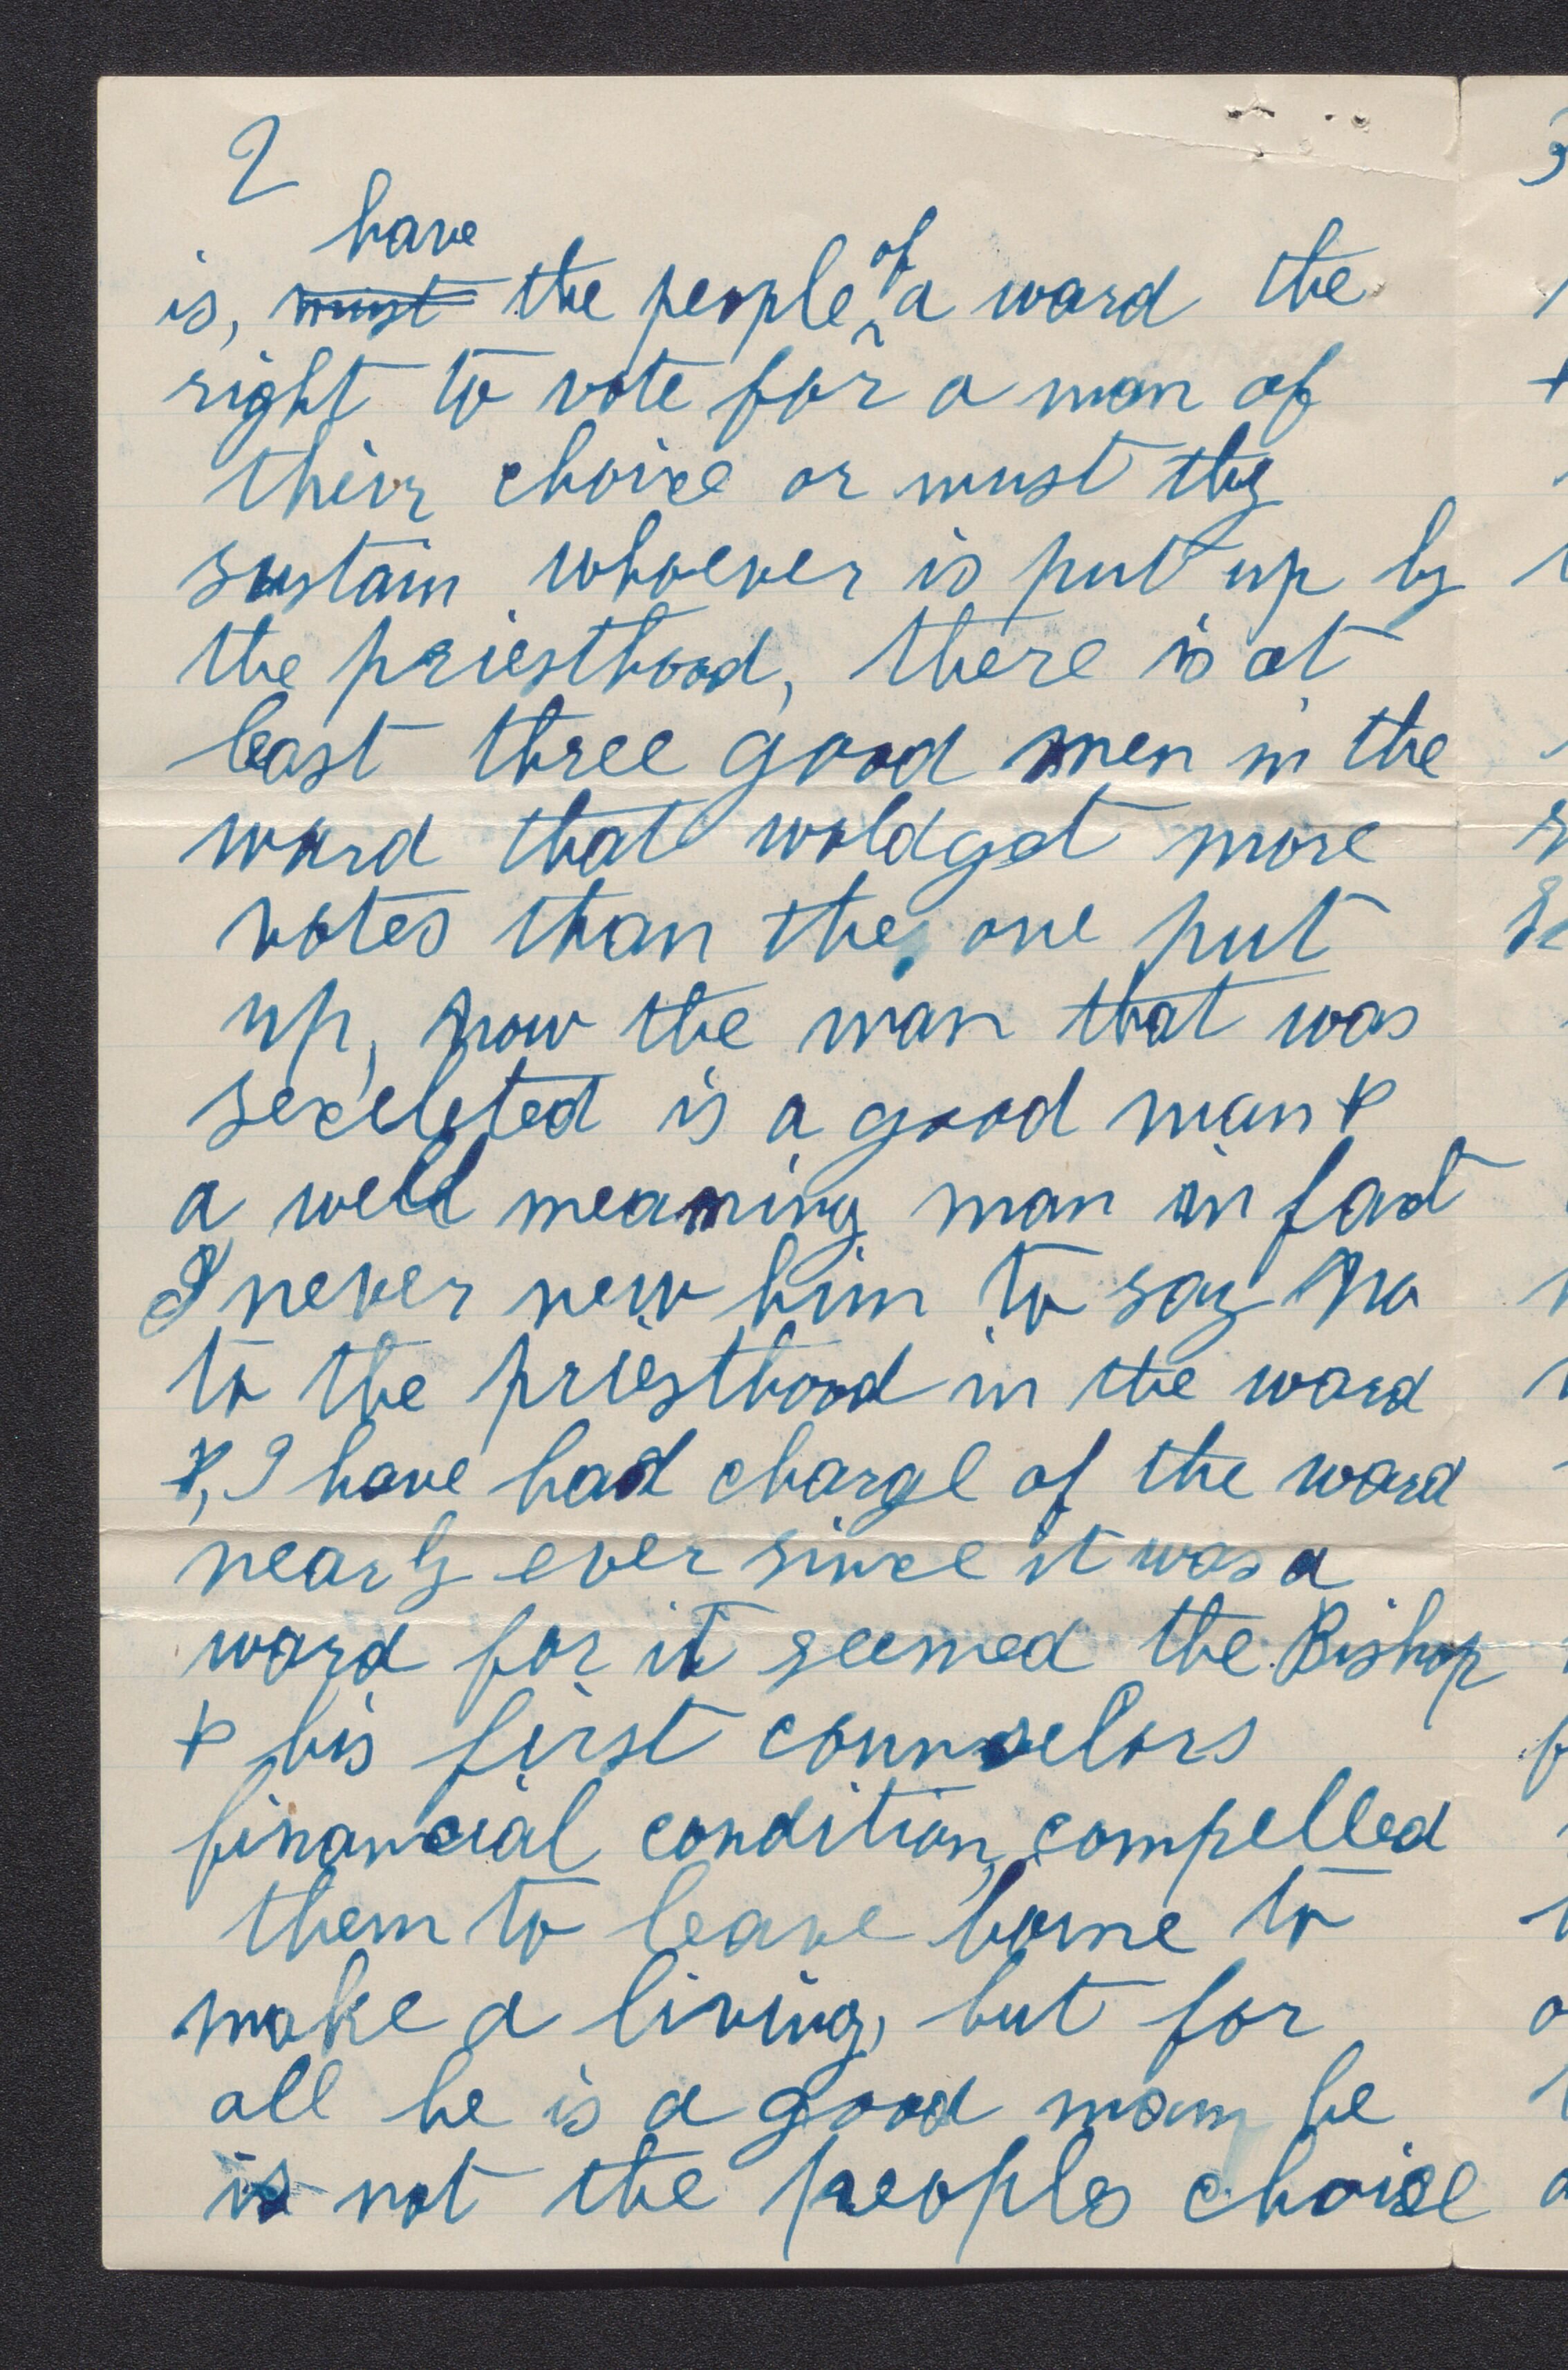 2
have
is, must the people of a ward the
right to vote for a man of
thier choice or must thy
sustain whoever is put up by
the priesthood, there is at
least three good men in the
ward that wold get more
votes than the one put
up, now the man that was
sexeleted is a good man &
a well meaning man in fact
I never new him to say no
to the priesthood in the ward
&, I have had charge of the ward
nearly ever since it was a
ward for it seemed the Bishop
& his first counselors
financial condition, compelled
them to leave home to
make a living, but for
all he is a good man he
is not the peoples choice
3